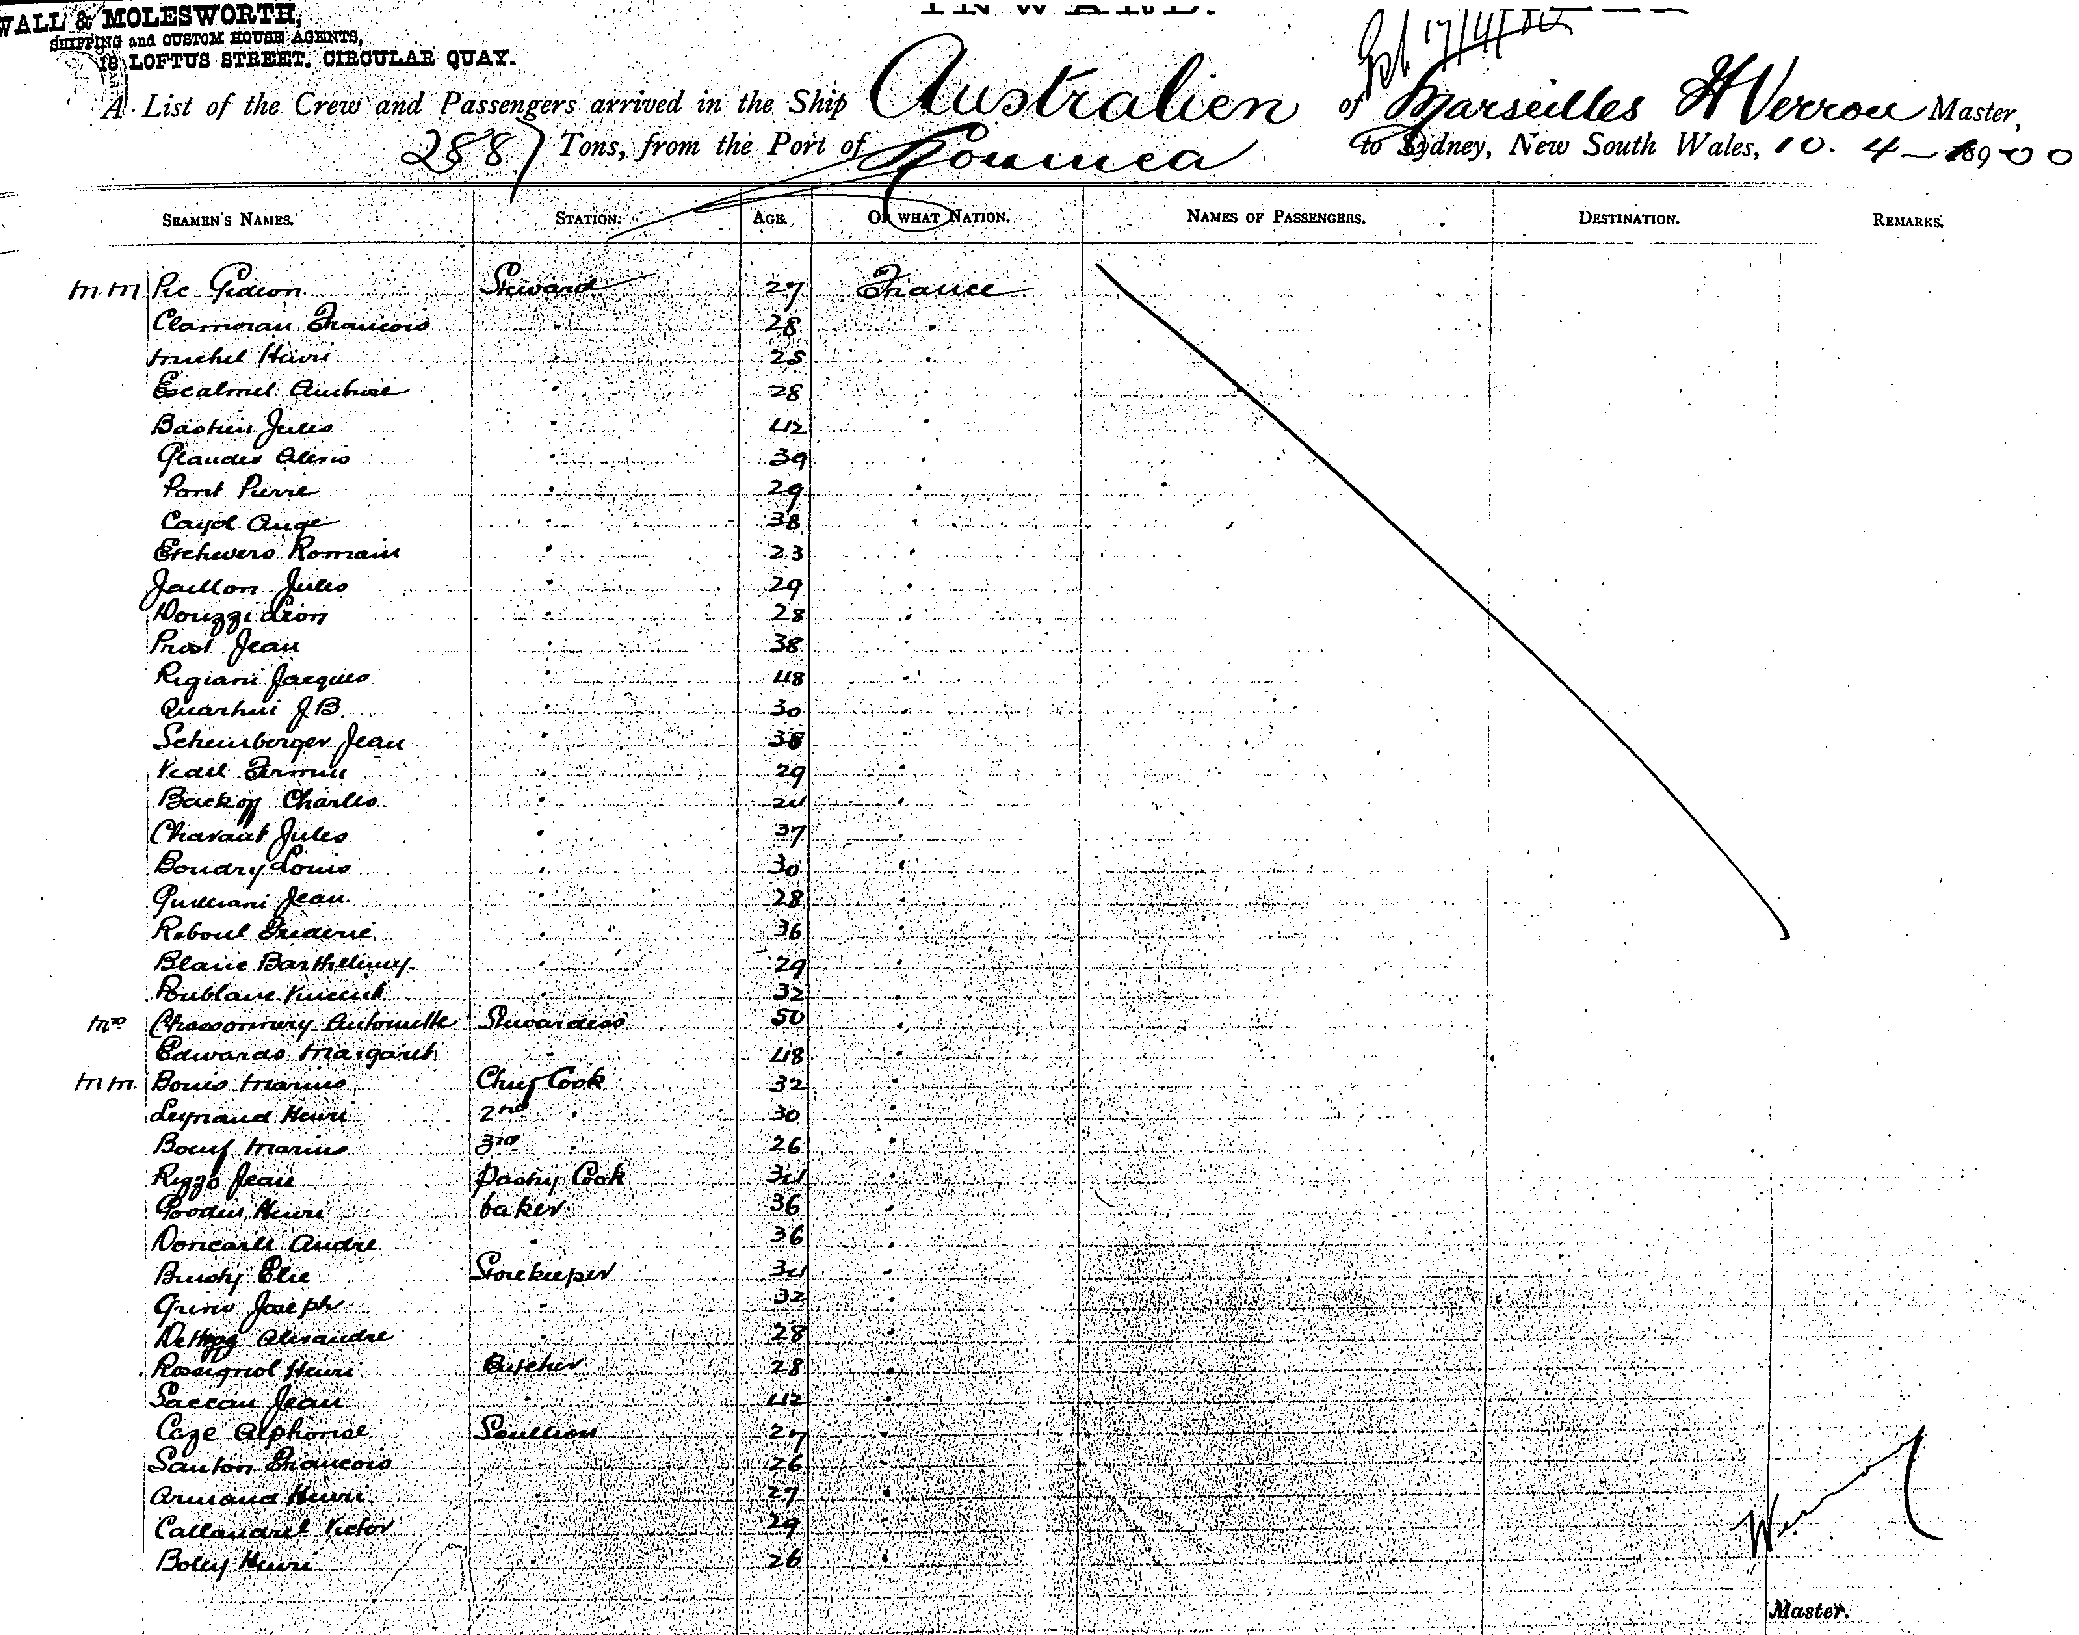 WALL & MOLESWORTH,
SHIPPING and CUSTOM HOUSE AGENTS,
18 LOFTUS STREET, CIRCULAR QUAY.
INWARD.
A List of the Crew and Passengers arrived in the Ship Australien of Marseilles H Verron Master,
2887 Tons, from the Port of Noumea to Sydney, New South Wales, 10. 4 - 1900
SEAMEN'S NAMES. STATION. AGE. OF WHAT NATION. NAMES OF PASSENGERS. DESTINATION. REMARKS.
mm Pic Gideon Steward 27 France
Clamoran Francois " 28 "
Michel Henri " 25 "
28 "
Bastin Jules " 42 "
39 "
Pont Pierre " 29 "
Cayol Ange " 38 "
Romain " 23 "
Jaillon Jules " 29 "
Douzzi Leon " 28 "
Prost Jean " 38 "
Rigiani Jacques " 48 "
J.B. " 30 "
Scheinsberger Jean " 38 "
Vidil Firmin " 29 "
Backoff Charles " 24 "
Chavant Jules " 37 "
Boudry Louis " 30 "
Jean " 28 "
Reboul Frederic " 36 "
Blanc Barthelemy " 29 "
Poublanc Vincent " 32 "
Antoinette Stewardess 50 "
Edwards Margaret " 48 "
mm. Bonis Marius Chief Cook 32 "
Leynaud Henri 2nd " 30 "
Boeuf Marius 3rd " 26 "
Rizzo Jean Pastry Cook 34 "
Henri baker 36 "
Doncarli Andre " 36 "
Elie Storekeeper 34 "
Joseph " 32 "
Alexandre " 28 "
Rossignol Henri Butcher 28 "
Saccau Jean " 42 "
Caze Alphonse Scullion 27 "
Santon Francois " 26 "
Armand Henri " 27 "
Callandrel Victor " 29 "
Henri " 26 "
Master.